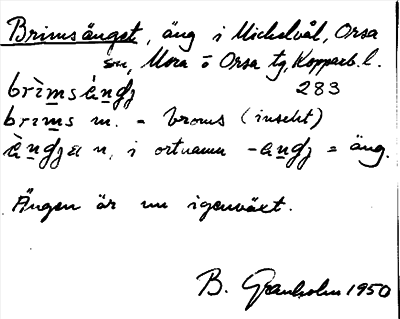 Brimsänget, äng i Mickelvål, Orsa
sn, Mora o Orsa tg, Kopparb. l.
brìmsὲŋgʒ 283
brɪms m. = broms (insekt)
ὲŋgʒ n. i ortnamn -ɛŋgʒ = äng.
Ängen är nu igenväxt.
B. Granholm 1950